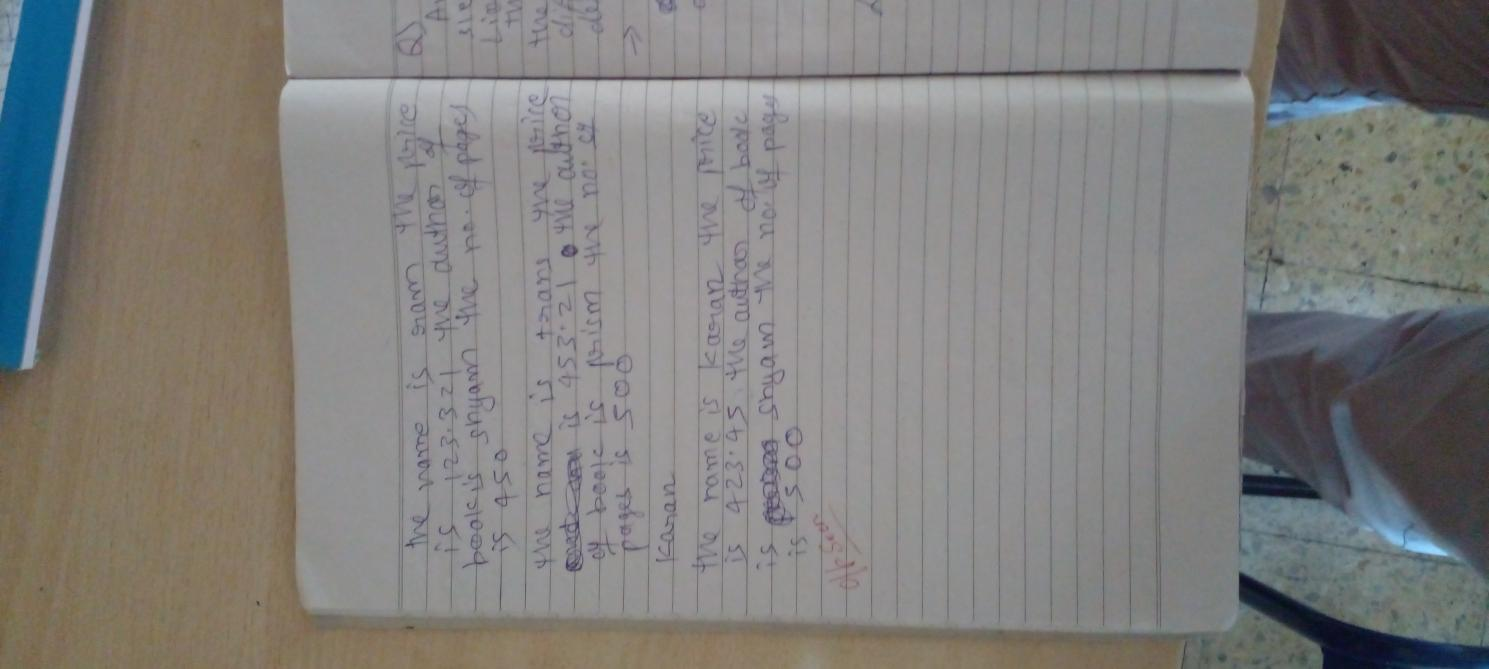 the name is ram the price
is 123.321 the author of
book is shyam the no. of pages
is 450
the name is trans the price
is 453.21 the author
of book is prism the no. of
pages is 500
Karan
the name is Karan the price
is 423.45. the author of book
is shyam the no. of pages
is 500
o/p seen
Q)
the